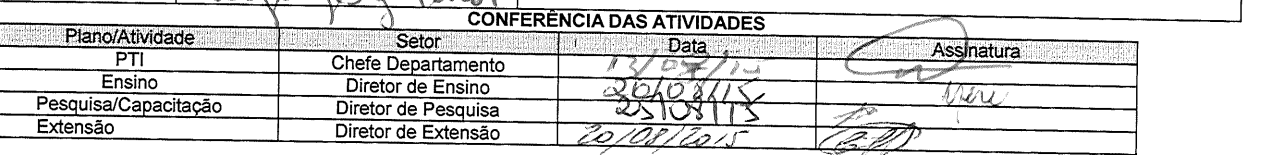 CONFERÊNCIA DAS ATIVIDADES
Plano/Atividade Setor Data Assinatura
PTI Chefe Departamento
Ensino Diretor de Ensino 20/08/15
Pesquisa/Capacitação Diretor de Pesquisa 25/08/15
Extensão Diretor de Extensão 20/08/2015